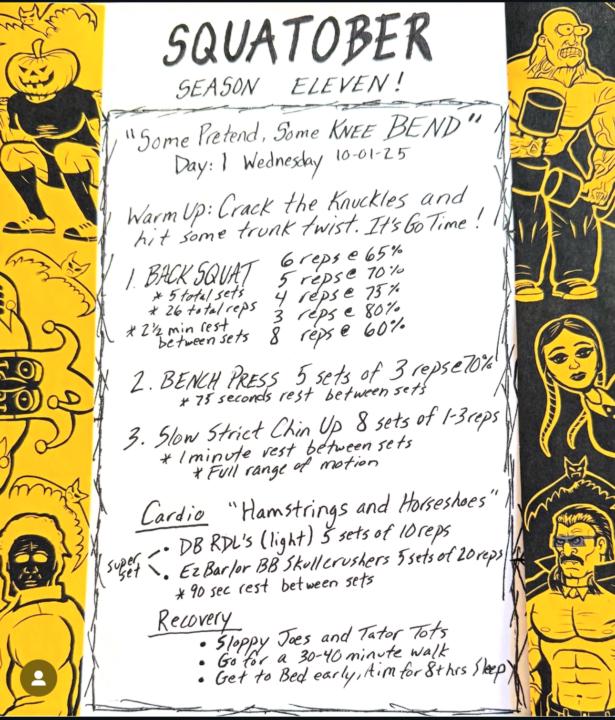 SQUATOBER
SEASON ELEVEN!
"Some Pretend, Some KNEE BEND"
Day: 1 Wednesday 10-01-25
Warm Up: Crack the Knuckles and
hit some trunk twist. It's Go Time!
1. BACK SQUAT
* 5 total sets
* 26 total reps
* 2½ min rest
between sets
6 reps @ 65%
5 reps @ 70%
4 reps @ 75%
3 reps @ 80%
8 reps @ 60%
2. BENCH PRESS 5 sets of 3 reps @ 70%
* 75 seconds rest between sets
3. Slow Strict Chin Up 8 sets of 1-3 reps
* 1 minute rest between sets
* Full range of motion
Cardio "Hamstrings and Horseshoes"
super set
• DB RDL's (light) 5 sets of 10 reps
• Ez Bar/or BB Skullcrushers 5 sets of 20 reps
* 90 sec rest between sets
Recovery
• Sloppy Joes and Tator Tots
• Go for a 30-40 minute walk
• Get to Bed early, Aim for 8+ hrs Sleep